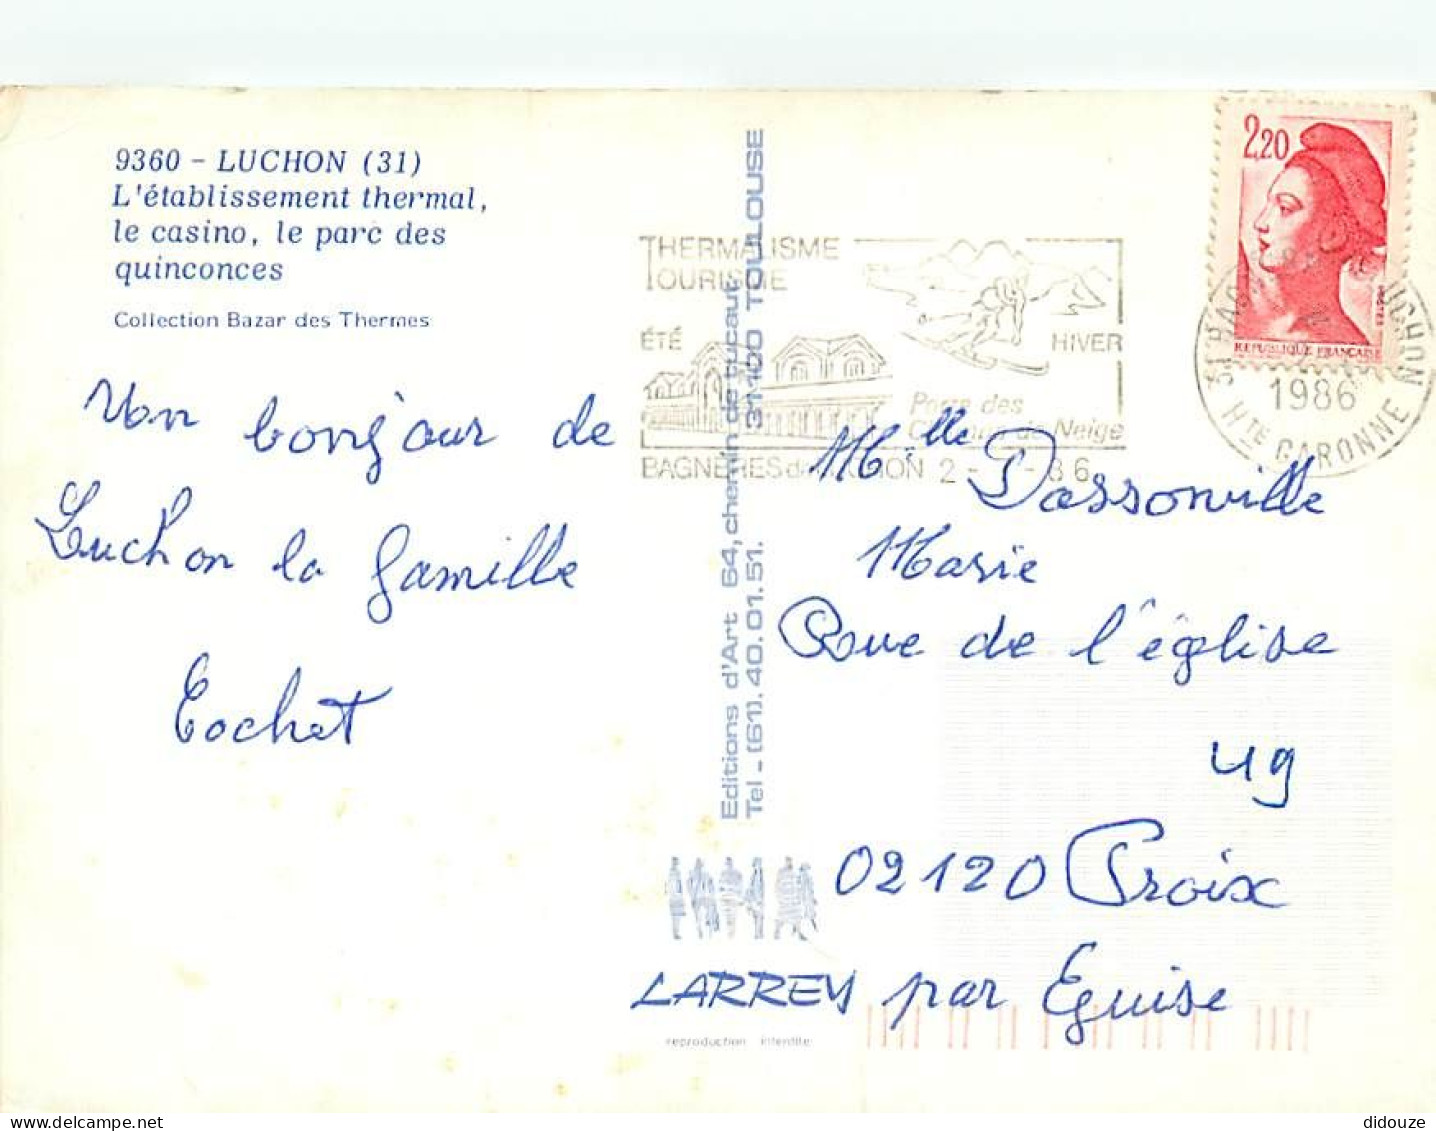 9360 - LUCHON (31)
L'établissement thermal,
le casino, le parc des
quinconces
Collection Bazar des Thermes
Un bonjour de
Luchon la famille
Cochet
Editions d'Art 64, chemin de tucaut,
Tel - (61). 40. 01. 51. 31100 TOULOUSE
LARREY
reproduction interdite
THERMALISME
TOURISME
ÉTÉ
HIVER
Parc des
de Neige
BAGNÈRES de LUCHON 2 - - 86
2,20
REPUBLIQUE FRANÇAISE
POSTES
31 LUCHON
1986
HTE GARONNE
Melle Dassonville
Marie
Rue de l'église
49
02120 Proix
par Eguise
didouze